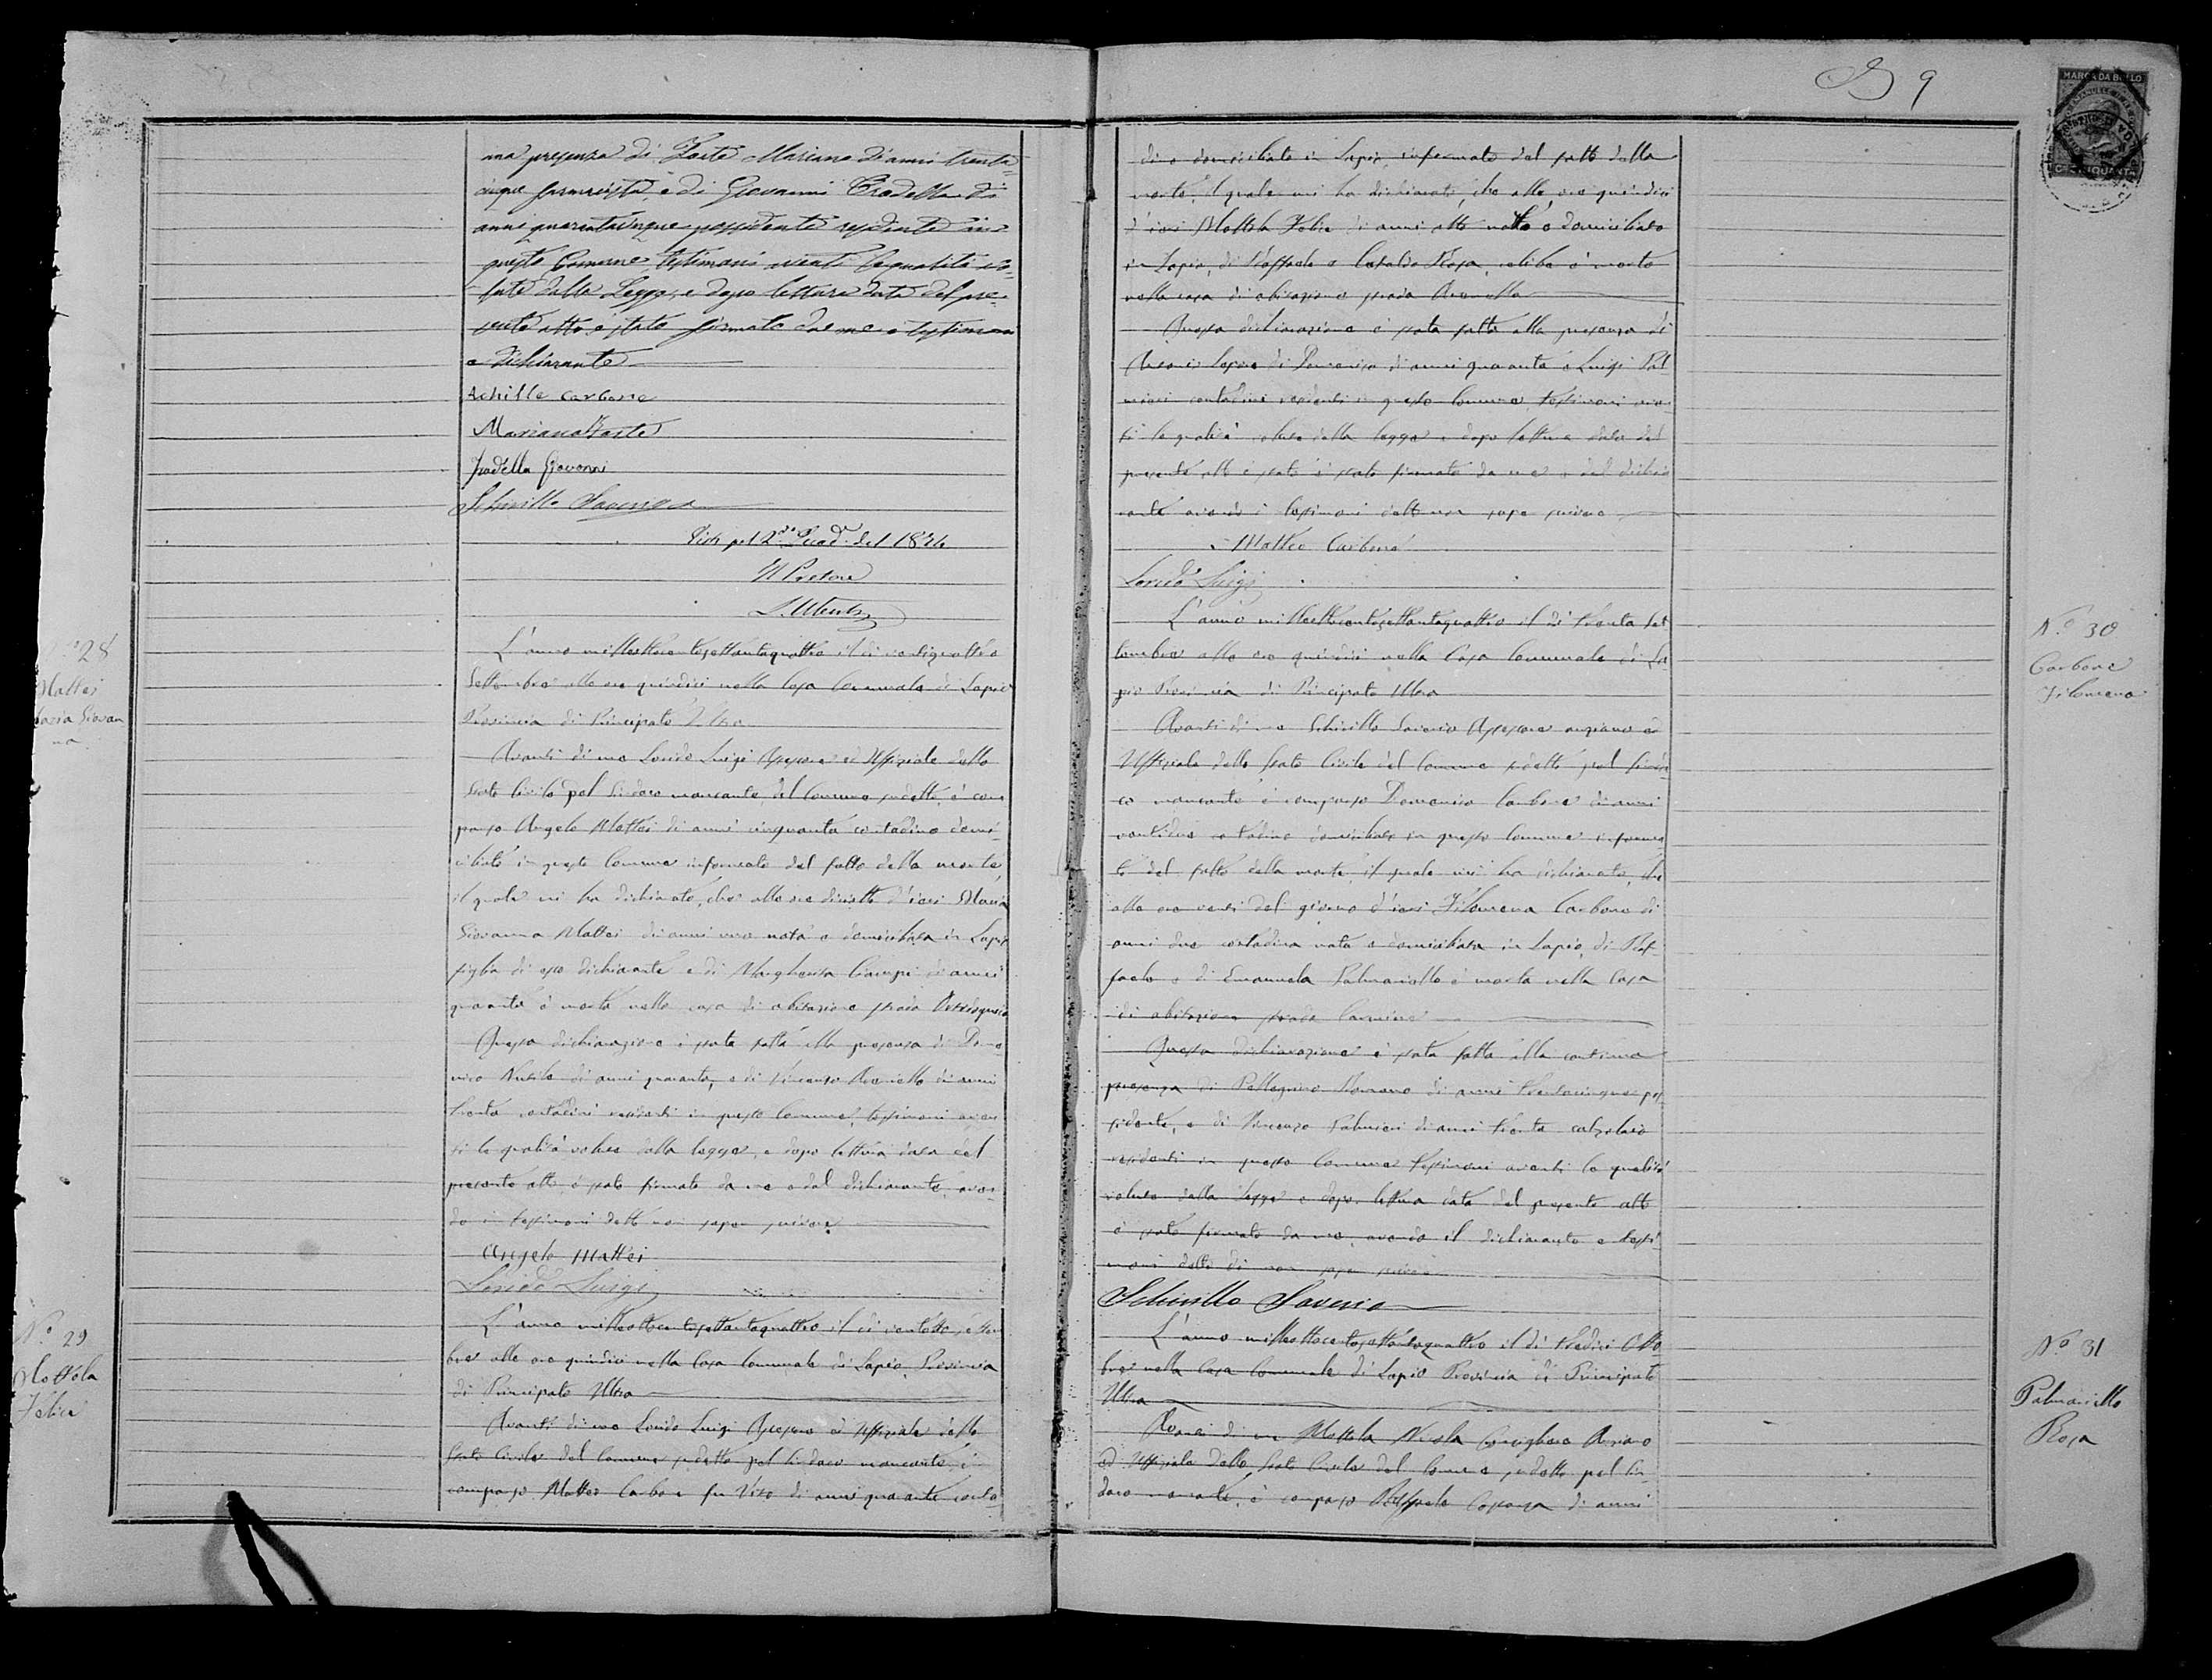 ma presenza di Forte Mariano di anni trenta
cinque farmacista, e di Giovanni Tradella di
anni quarantacinque possidente residenti in
questo Comune testimoni aventi le qualità vo=
lute dalla Legge, e dopo lettura data del pre=
sente atto è stato firmato da me i testimoni
e dichiarante
Achille Carbone
Mariano Forte
Tradella Giovanni
Schirillo Saverio
Visto pel 2° Quad. del 1874
Il Pretore
N° 28
Mattei
Maria Giovan
na
L'anno milleottocentosettantaquattro il di ventiquattro
Settembre alle ore quindici nella Casa Comunale di Lapio
Provincia di Principato Ultra
Avanti di me Lorido Luigi Assessore ed Uffiziale dello
Stato Civile pel Sindaco mancante del Comune sudetto, è com
parso Angelo Mattei di anni cinquanta contadino domi
ciliato in questo Comune informato del fatto della morte,
il quale mi ha dichiarato, che alle ore diciotto d'ieri Maria
Giovanna Mattei di anni uno nata e domiciliata in Lapio
figlia di esso dichiarante e di Margherita Ciampi di anni
quaranta è morta nella casa di abitazione strada
Questa dichiarazione è stata fatta alla presenza di Dome
nico di anni quaranta, e di Vincenzo di anni
trenta contadini residenti in questo Comune, testimoni aven
ti le qualità volute dalla legge, e dopo lettura data del
presente atto, è stato firmato da me e dal dichiarante, aven
do i testimoni detto non saper scrivere
Angelo Mattei
Lorido Luigi
N° 29
Mottola
Felice
L'anno milleottocentosettantaquattro il di ventotto settem
bre alle ore quindici nella Casa Comunale di Lapio, Provincia
di Principato Ultra
Avanti di me Lorido Luigi Assessore ed Uffiziale dello
Stato Civile del Comune sudetto pel Sindaco mancante, è
comparso Matteo Carbone fu Vito di anni quaranta conta
9
MARCA DA BOLLO
di e domiciliato in Lapio, informato del fatto della
morte, il quale mi ha dichiarato, che alle ore quindici
d'ieri Mottola Felice di anni otto nato e domiciliato
in Lapio, di Raffaele e Cataldo Rosa, celibe è morto
nella casa di abitazione strada
Questa dichiarazione è stata fatta alla presenza di
di Domenico di anni quaranta e Luigi Pal
mieri contadini residenti in questo Comune, testimoni aven
ti le qualità volute dalla legge e dopo lettura data del
presente atto e stato è stato firmato da me e dal dichia
rante avendo i testimoni detto non saper scrivere
Matteo Carbone
Lorido Luigi
N° 30
Carbone
Filomena
L'anno milleottocentosettantaquattro il di trenta Set
tembre alle ore quindici nella Casa Comunale di La
pio Provincia di Principato Ultra
Avanti di me Schirillo Saverio Assessore anziano ed
Uffiziale dello Stato Civile del Comune sudetto pel Sinda
co mancante è comparso Domenico Carbone di anni
ventidue contadino domiciliato in questo Comune informa
to del fatto della morte, il quale mi ha dichiarato, che
alle ore venti del giorno d'ieri Filomena Carbone di
anni due contadina nata e domiciliata in Lapio, di Raf
faele e di Emanuela Palmariello è morta nella casa
di abitazione strada Carmine
Questa dichiarazione è stata fatta alla continua
presenza di Pellegrino Romano di anni trentacinque pos
sidente, e di Vincenzo Palmieri di anni trenta calzolaio
residenti in questo Comune testimoni aventi le qualità
volute dalla legge e dopo lettura data del presente atto
è stato firmato da me, avendo il dichiarante e testi
moni detto di non saper scrivere
Schirillo Saverio
N° 31
Palmariello
Rosa
L'anno milleottocentosettantaquattro il di tredici Otto
bre nella Casa Comunale di Lapio Provincia di Principato
Ultra
Avanti di me Mottola Nicola Consigliere Anziano
ed Uffiziale dello Stato Civile del Comune sudetto pel Sin
daco mancante, è comparso Raffaele Costanza di anni